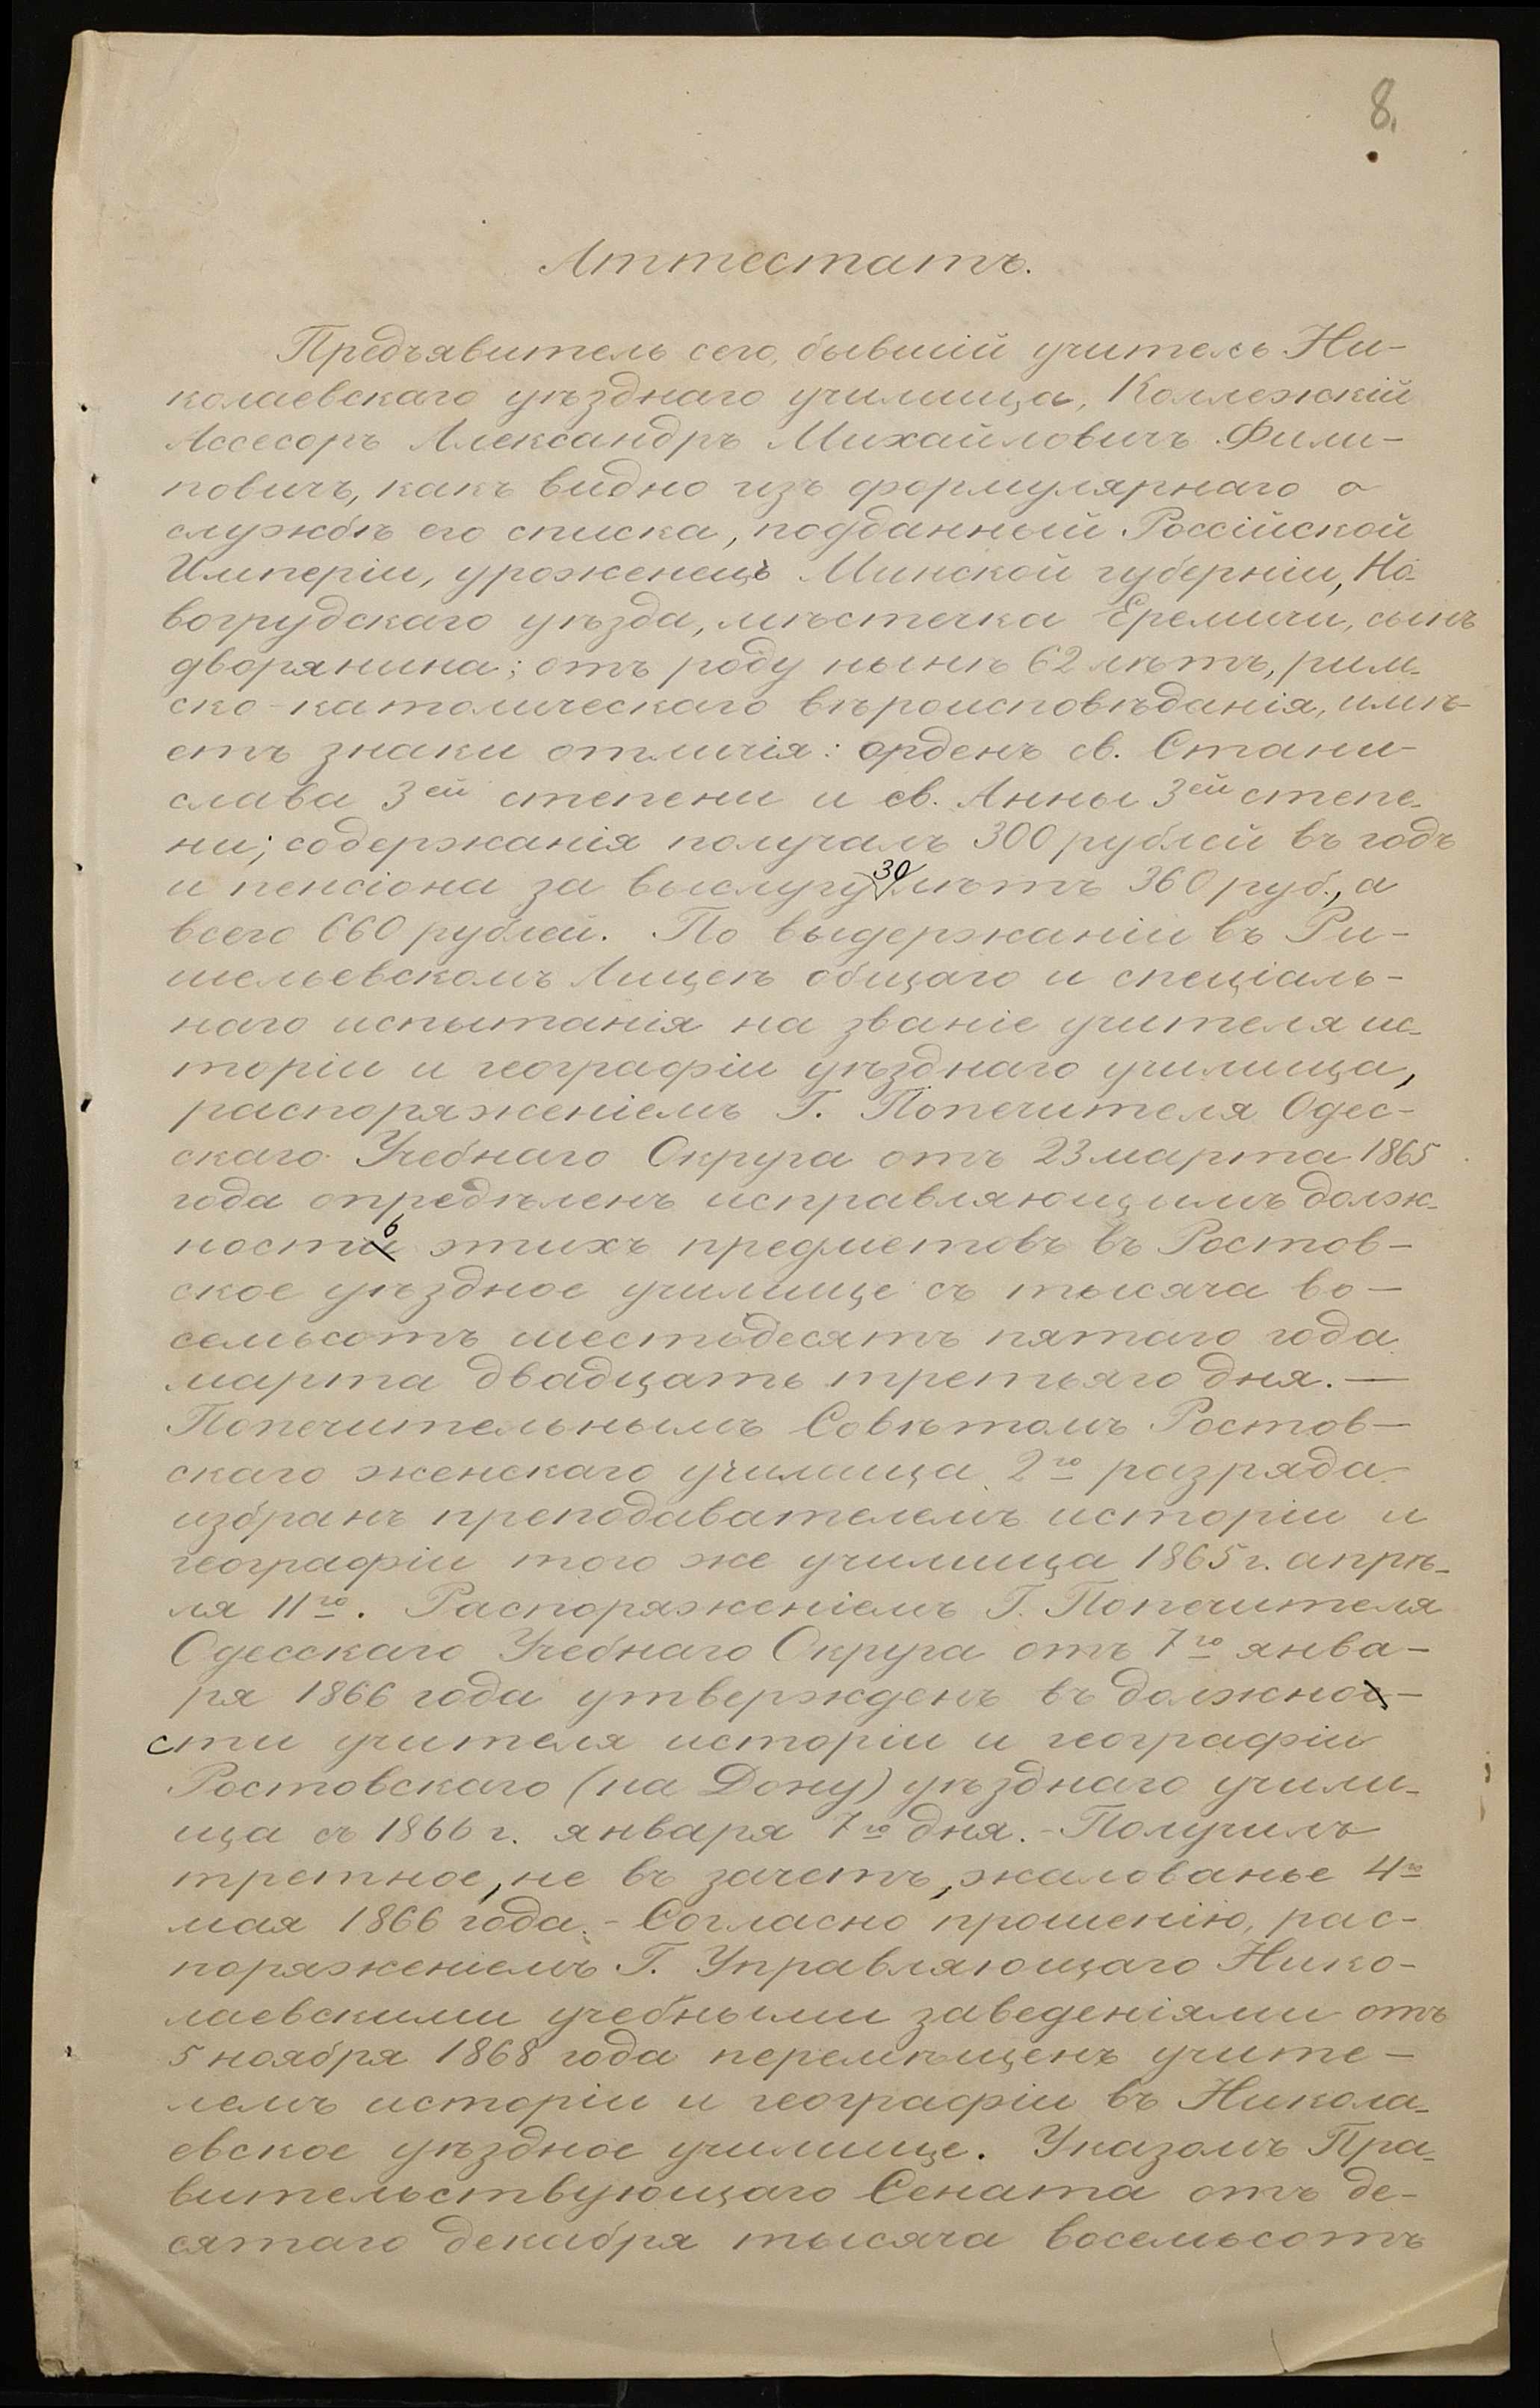 8.
Аттестатъ.
Предъявитель сего, бывшій учитель Ни-
колаевскаго уѣзднаго училища, Коллежскій
Ассесоръ Александръ Михайловичъ Фили-
повичъ, какъ видно изъ формулярнаго о
службѣ его списка, подданный Россійской
Имперіи, уроженецъ Минской губерніи, Но-
вогрудскаго уѣзда, мѣстечка Еремичи, сынъ
дворянина; отъ роду нынѣ 62 лѣтъ, рим-
ско-католическаго вѣроисповѣданія, имѣ-
етъ знаки отличія: орденъ св. Стани-
слава 3ей степени и св. Анны 3ей степе-
ни; содержанія получалъ 300 рублей въ годъ
и пенсіона за выслугу 30 лѣтъ 360 руб., а
всего 660 рублей. По выдержаніи въ Ри-
шельевскомъ Лицеѣ общаго и спеціаль-
наго испытанія на званіе учителя ис-
торіи и географіи уѣзднаго училища,
распоряженіемъ Г. Попечителя Одес-
скаго Учебнаго Округа отъ 23 марта 1865
года опредѣленъ исправляющимъ долж-
ность этихъ предметовъ въ Ростов-
ское уѣздное училище съ тысяча во-
семьсотъ шестьдесятъ пятаго года
марта двадцать третьяго дня. —
Попечительнымъ Совѣтомъ Ростов-
скаго женскаго училища 2го разряда
избранъ преподавателемъ исторіи и
географіи того же училища 1865 г. апрѣ-
ля 11го. Распоряженіемъ Г. Попечителя
Одесскаго Учебнаго Округа отъ 7го янва-
ря 1866 года утвержденъ въ должно-
сти учителя исторіи и географіи
Ростовскаго (на Дону) уѣзднаго учили-
ща съ 1866 г. января 7го дня. - Получилъ
третное, не въ зачетъ, жалованье 4го
мая 1866 года. - Согласно прошенію, рас-
поряженіемъ Г. Управляющаго Нико-
лаевскими учебными заведеніями отъ
5 ноября 1868 года перемѣщенъ учите-
лемъ исторіи и географіи въ Никола-
евское уѣздное училище. Указомъ Пра-
вительствующаго Сената отъ де-
сятаго декабря тысяча восемьсотъ